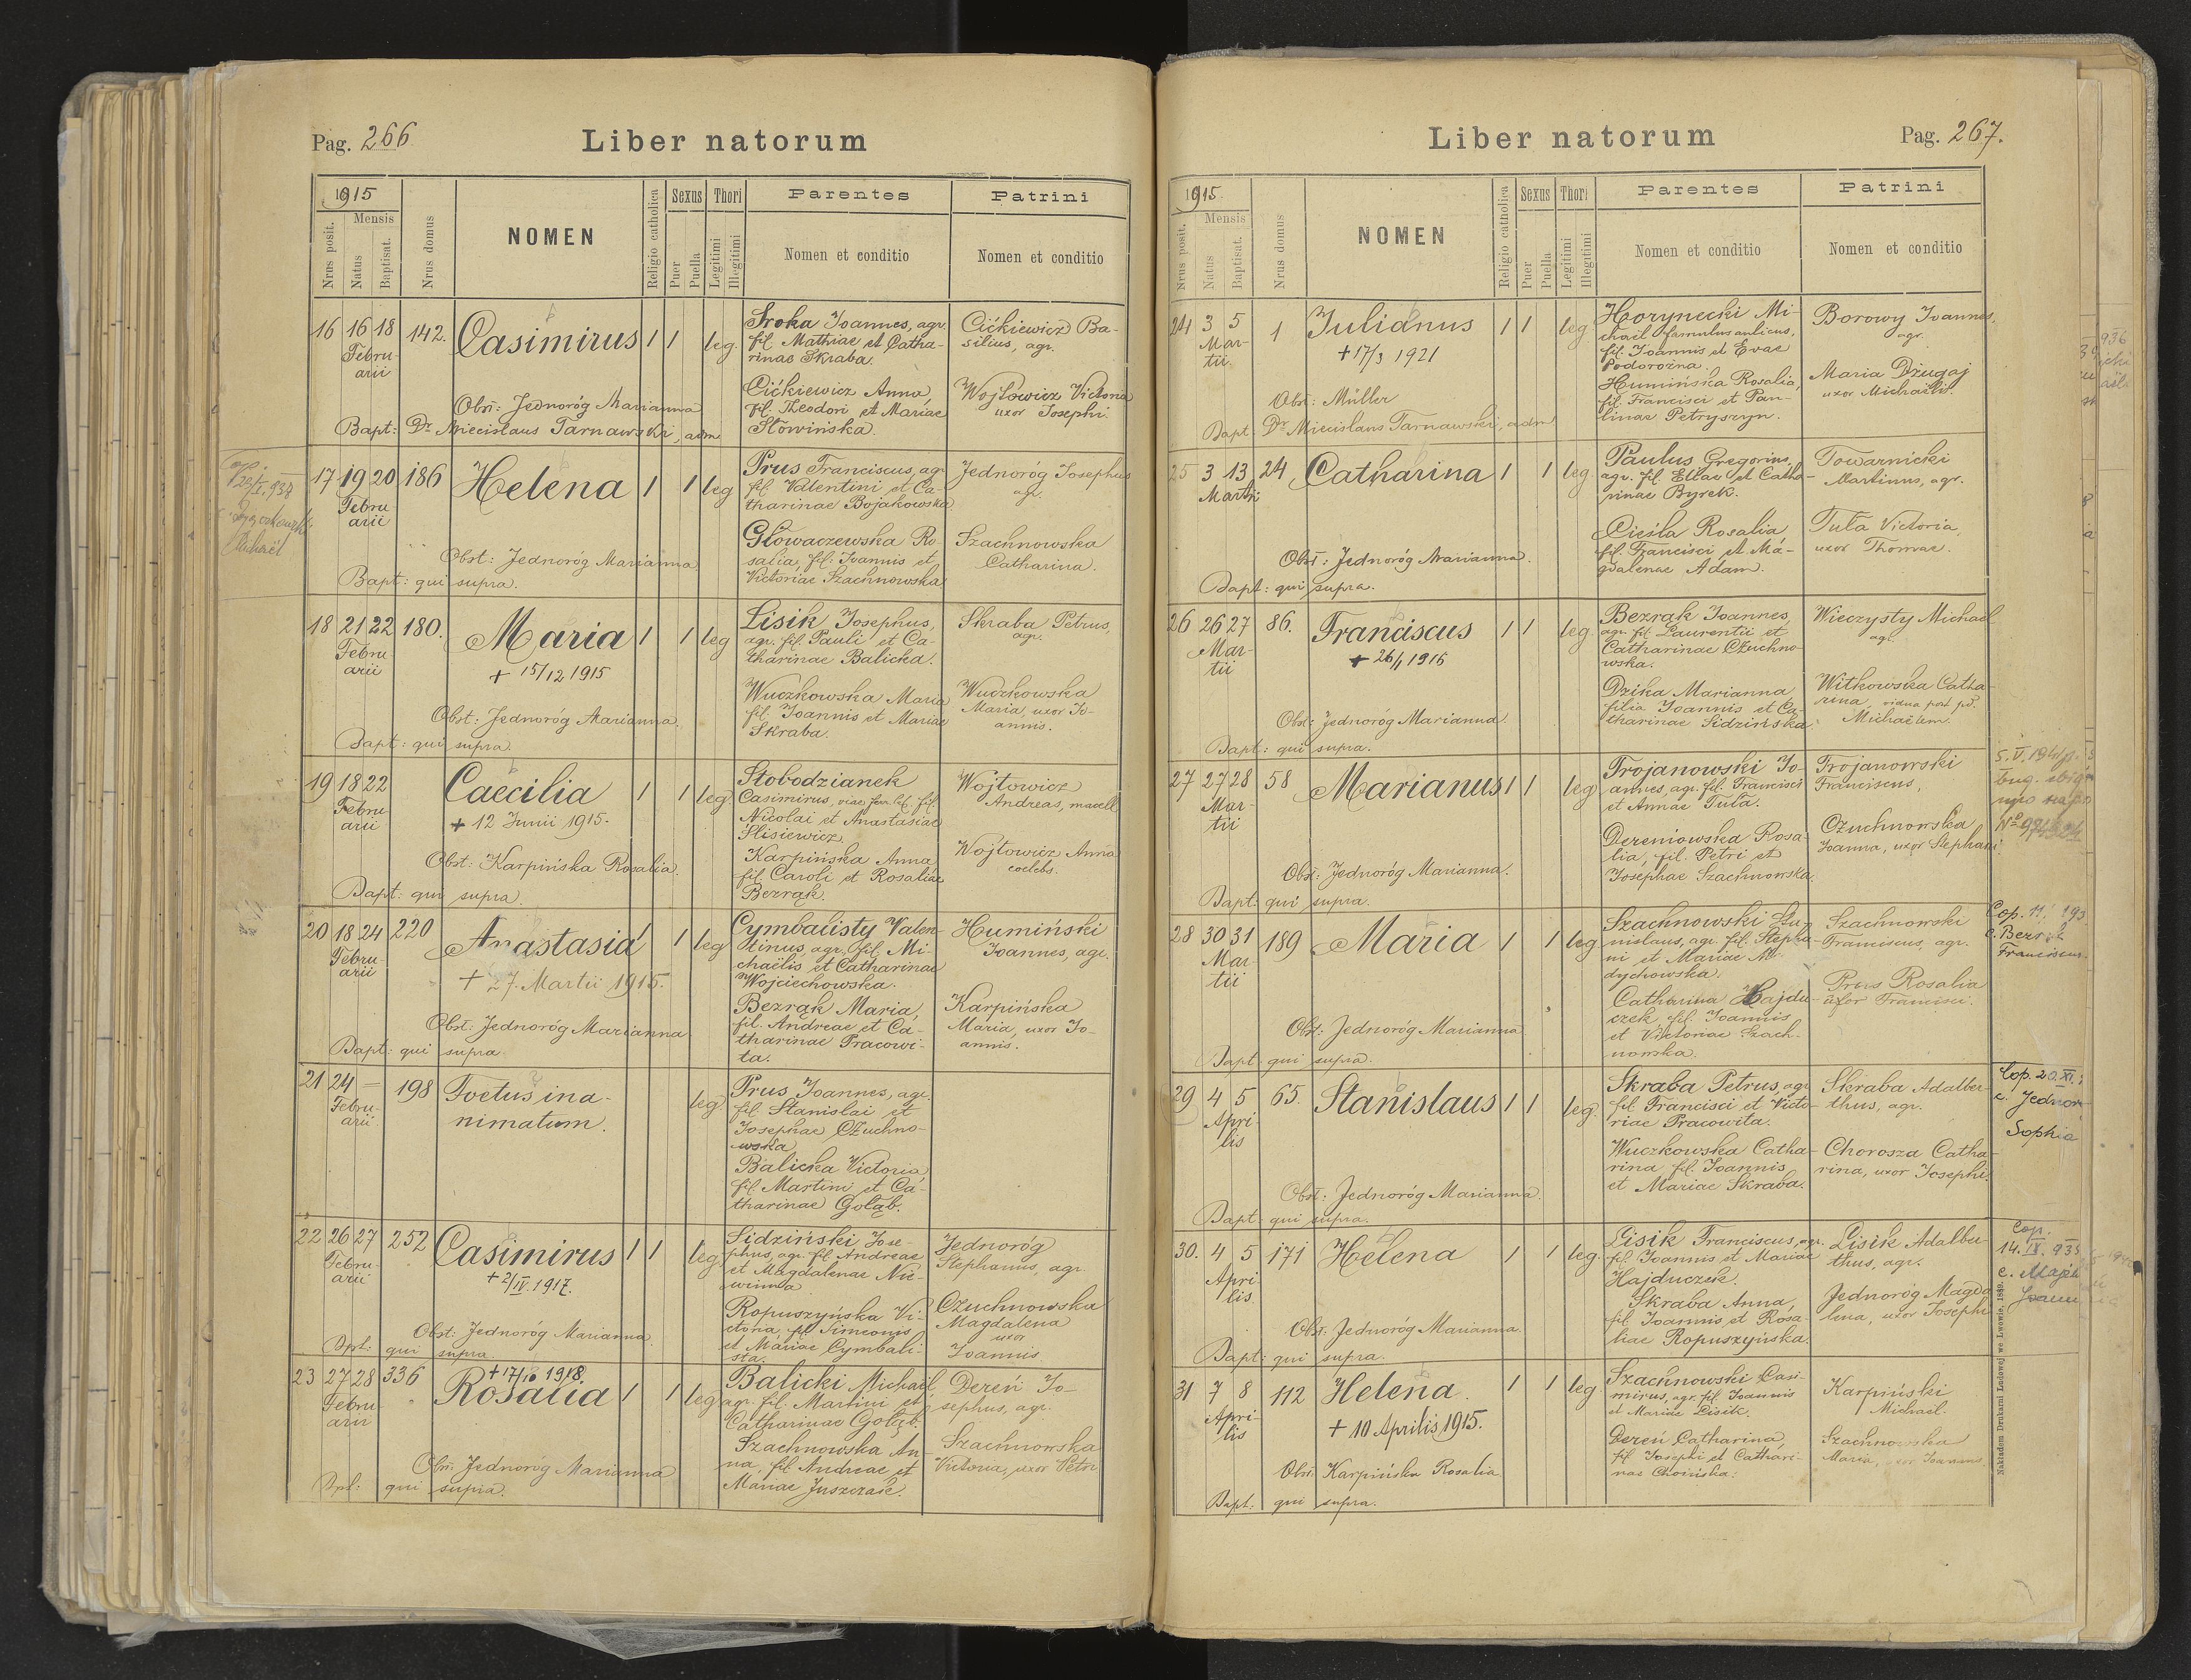 Pag. 266
Liber natorum
1915
Mensis
Nrus posit.
Natus
Baptisat.
Nrus domus
NOMEN
Religio catholica
Sexus
Puer
Puella
Thori
Legitimi
Illegitimi
Parentes
Nomen et conditio
Patrini
Nomen et conditio
16 16 18 142. Casimirus 1 1 leg.
Febru-
arii
Sroka Joannes, agr.
fil. Mathiae et Catha-
rinae Skraba.
Cićkiewicz Anna,
fil. Theodori et Mariae
Słowińska.
Cićkiewicz Ba-
silius, agr.
Wojtowicz Victoria
uxor Josephi.
Obst: Jednoróg Marianna
Bapt: Dr Miecislaus Tarnawski, adm
17 19 20 186 Helena 1 1 leg
Febru
arii
Prus Franciscus, agr
fil. Valentini et Ca-
tharinae Bojakowska
Głowaczewska Ro-
salia, fil: Joannis et
Victoriae Szachnowska
Jednoróg Josephus
agr.
Szachnowska
Catharina.
Obst: Jednoróg Marianna
Bapt: qui supra.
Michael
18 21 22 180. Maria 1 1 leg
Febru
arii
+ 15/12 1915
Lisik Josephus,
agr. fil. Pauli et Ca-
tharinae Balicka.
Wuczkowska Maria
fil. Joannis et Mariae
Skraba.
Skraba Petrus,
agr.
Wuczkowska
Maria, uxor Jo-
annis.
Obst: Jednoróg Marianna.
Bapt: qui supra.
19 18 22 Caecilia 1 1 leg
Febru
arii
+ 12 Junii 1915.
Słobodzianek
Casimirus,
Nicolai et Anastasiae
Slisiewicz
Karpińska Anna
fil. Caroli et Rosaliae
Bezrąk.
Wojtowicz
Andreas,
Wojtowicz Anna
coelebs.
Obst: Karpińska Rosalia.
Bapt: qui supra.
20 18 24 220 Anastasia 1 1 leg
Febru-
arii
+ 27. Martii 1915.
Cymbalisty Valen-
tinus, agr. fil. Mi-
chaëlis et Catharinae
Wojciechowska.
Bezrąk Maria,
fil. Andreae et Ca-
tharinae Pracowi-
ta.
Humiński
Joannes, agr.
Karpińska
Maria, uxor Jo-
annis.
Obst: Jednoróg Marianna
Bapt: qui supra.
21 24 — 198 Foetus ina-
nimatum. leg
Febru-
arii
Prus Joannes, agr.
fil. Stanislai et
Josephae Czuchno-
wska
Balicka Victoria
fil. Martini et Ca-
tharinae Gołąb.
22 26 27 252 Casimirus 1 1 leg
Febru-
arii
+ 2/IV. 1917.
Sidziński Jose-
phus, agr. fil. Andreae
et Magdalenae Nie-
winna
Ropuszyńska Vi-
ctoria, fil. Simeonis
et Mariae Cymbali-
sta.
Jednoróg
Stephanus, agr.
Czuchnowska
Magdalena
uxor
Joannis
Obst: Jednoróg Marianna
Bpt: qui supra.
23 27 28 336 Rosalia 1 1 leg
Febru-
arii
+ 17/10 1918.
Balicki Michael,
agr. fil. Martini et
Catharinae Gołąb
Szachnowska An-
na, fil. Andreae et
Mariae Juszczak.
Dereń Jo-
sephus, agr.
Szachnowska
Victoria, uxor Petri
Obst: Jednoróg Marianna
Bpt: qui supra.
Liber natorum
Pag. 267.
1915.
Mensis
Nrus posit.
Natus
Baptisat.
Nrus domus
NOMEN
Religio catholica
Sexus
Puer
Puella
Thori
Legitimi
Illegitimi
Parentes
Nomen et conditio
Patrini
Nomen et conditio
24 3 5 1 Julianus 1 1 leg
Mar-
tii.
+ 17/3 1921
Horynecki Mi-
chael famulus aulicus,
fil. Joannis et Evae
Podorożna.
Humińska Rosalia,
fil. Francisci et Pau-
linae Petryszyn.
Borowy Joannes,
agr.
Maria Długaj
uxor Michaelis.
Obst: Müller
Bapt Dr Miecislaus Tarnawski, adm
25 3 13 24 Catharina 1 1 leg.
Martii
Paulus Gregorius,
agr. fil. Eliae et Catha-
rinae Byrek.
Cieśla Rosalia
fil. Francisci et Ma-
gdalenae Adam.
Towarnicki
Martinus, agr.
Tuła Victoria,
uxor Thomae.
Obst: Jednoróg Marianna.
Bapt: qui supra.
26 26 27 86. Franciscus 1 1 leg.
Mar-
tii
+ 26/1 1916
Bezrąk Joannes,
agr. fil. Laurentii et
Catharinae Czuchno-
wska.
Dzika Marianna
filia Joannis et Ca-
tharinae Sidzińska.
Wieczysty Michael
agr.
Witkowska Catha-
rina, vidua post pd.
Michaëlem.
Obst: Jednoróg Marianna.
Bapt: qui supra.
27 27 28 58 Marianus 1 1 leg
Mar-
tii
Trojanowski Jo-
annes, agr. fil. Francisci
et Annae Tuła.
Dereniowska Rosa-
lia, fil. Petri et
Josephae Szachnowska.
Trojanowski
Franciscus,
Czuchnowska
Joanna, uxor Stephani
Obst: Jednoróg Marianna.
Bapt: qui supra.
28 30 31 189 Maria 1 1 leg
Mar-
tii
Szachnowski Sta-
nislaus, agr. fil. Stepha-
ni et Mariae My-
dychowska.
Catharina Hajdu-
czek, fil. Joannis
et Victoriae Szach-
nowska.
Szachnowski
Franciscus, agr.
Prus Rosalia
uxor Francisci.
c. Bezrąk
Franciscus.
Obst: Jednoróg Marianna
Bapt qui supra.
29 4 5 65. Stanislaus 1 1 leg.
Apri-
lis
Skraba Petrus, agr
fil. Francisci et Victo-
riae Pracowita.
Wuczkowska Catha-
rina fil. Joannis
et Mariae Skraba.
Skraba Adalber-
thus, agr.
Chorosza Catha-
rina, uxor Josephi.
Cop. 20. XI.
c. Jednor
Sophia
Obst: Jednoróg Marianna.
Bapt qui supra.
30. 4 5 171 Helena 1 1 leg.
Apri-
lis
Lisik Franciscus, agr.
fil. Joannis et Mariae
Hajduczek.
Skraba Anna,
fil. Joannis et Rosa-
liae Ropuszyńska.
Lisik Adalber-
thus, agr.
Jednoróg Magda-
lena, uxor Josephi
Cop.
14. IX. 935
Obst. Jednoróg Marianna
Bapt: qui supra.
31 7 8 112 Helena. 1 1 leg
Apri-
lis
+ 10 Aprilis 1915.
Szachnowski Casi-
mirus, agr. fil. Joannis
et Mariae Lisik.
Dereń Catharina,
fil Josephi et Cathari-
nae Choińska.
Karpiński
Michael.
Szachnowska
Maria, uxor Joannis.
Obst. Karpińska Rosalia
Bapt. qui supra.
Nakładem Drukarni Ludowej we Lwowie. 1889.